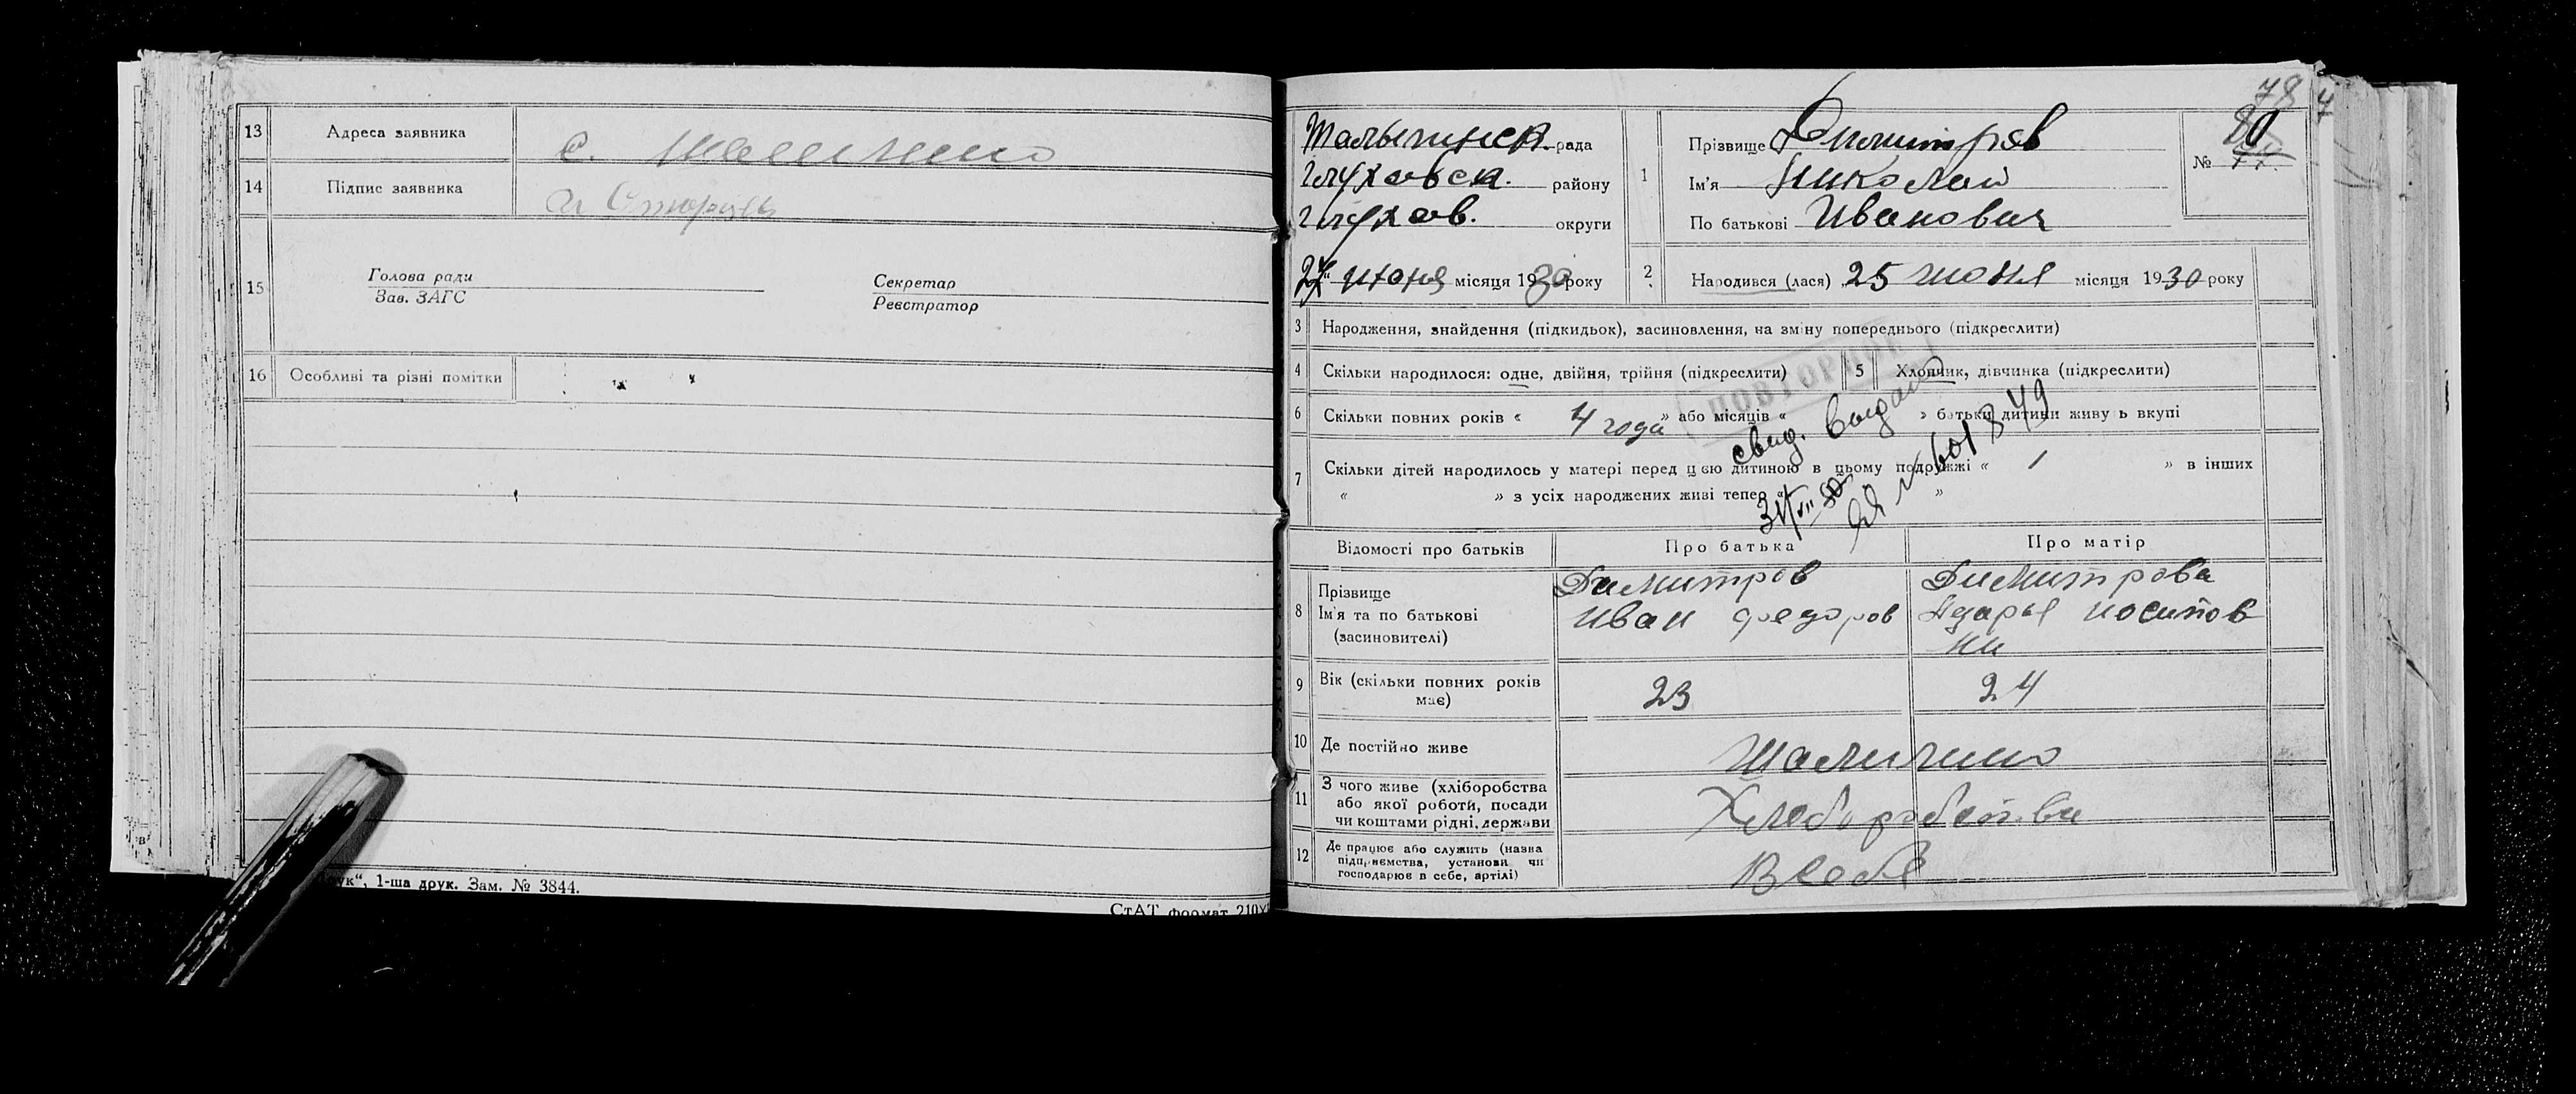 13 Адреса заявника с. Шаличино
14 Підпис заявника
15 Голова ради
Зав. ЗАГС
Секретар
Реєстратор
16 Особливі та різні помітки
ук“, 1-ша друк. Зам. № 3844.
СтАТ формат 210
78
рада
Глуховск. району
Глухов. округи
июня місяця 1930 року
1 Прізвище Димитров
Ім'я Николай
По батькові Иванович
№ 80
2 Народився (лася) 25 июня місяця 1930 року
3 Народження, знайдення (підкидьок), засиновлення, на зміну попереднього (підкреслити)
4 Скільки народилося: одне, двійня, трійня (підкреслити) 5 Хлопчик, дівчинка (підкреслити)
ПОВТОРНОЕ
6 Скільки повних років « 4 года » або місяців « » батьки дитини живуть вкупі
свид. выдано
7 Скільки дітей народилось у матері перед цією дитиною в цьому подружжі « 1 » в інших
« » з усіх народжених живі тепер « »
Відомості про батьків Про батька Про матір
8 Прізвище
Ім'я та по батькові
(засиновителі)
Димитров
Иван Федоров
Димитрова
Дарья Иосипов
на
9 Вік (скільки повних років
має)
23 24
10 Де постійно живе Шаличино
11 З чого живе (хліборобства
або якої роботи, посади
чи коштами рідні, держави
Хлеборобства
12 Де працює або служить (назва
підприємства, установи чи
господарює в себе, артілі)
В себе